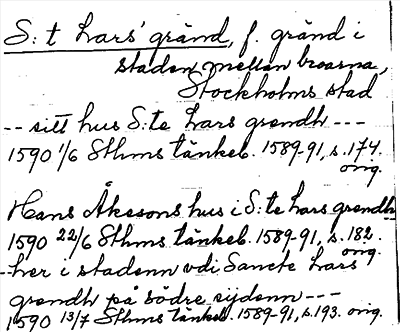 S:t Lars' gränd, f. gränd i
staden mellan broarna,
Stockholms stad
-- sitt hus S:te Lars grendh ---
1590 1/6 Sthms tänkeb. 1589-91, s. 174.
orig.
Hans Åkesons hus i S:te Lars grendh
1590 22/6 Sthms tänkeb. 1589-91, s. 182.
orig.
--her i stadenn vdi Sancte Lars
grendh på södre sijdenn ---
1590 13/7 Sthms tänkeb. 1589-91, s. 193. orig.